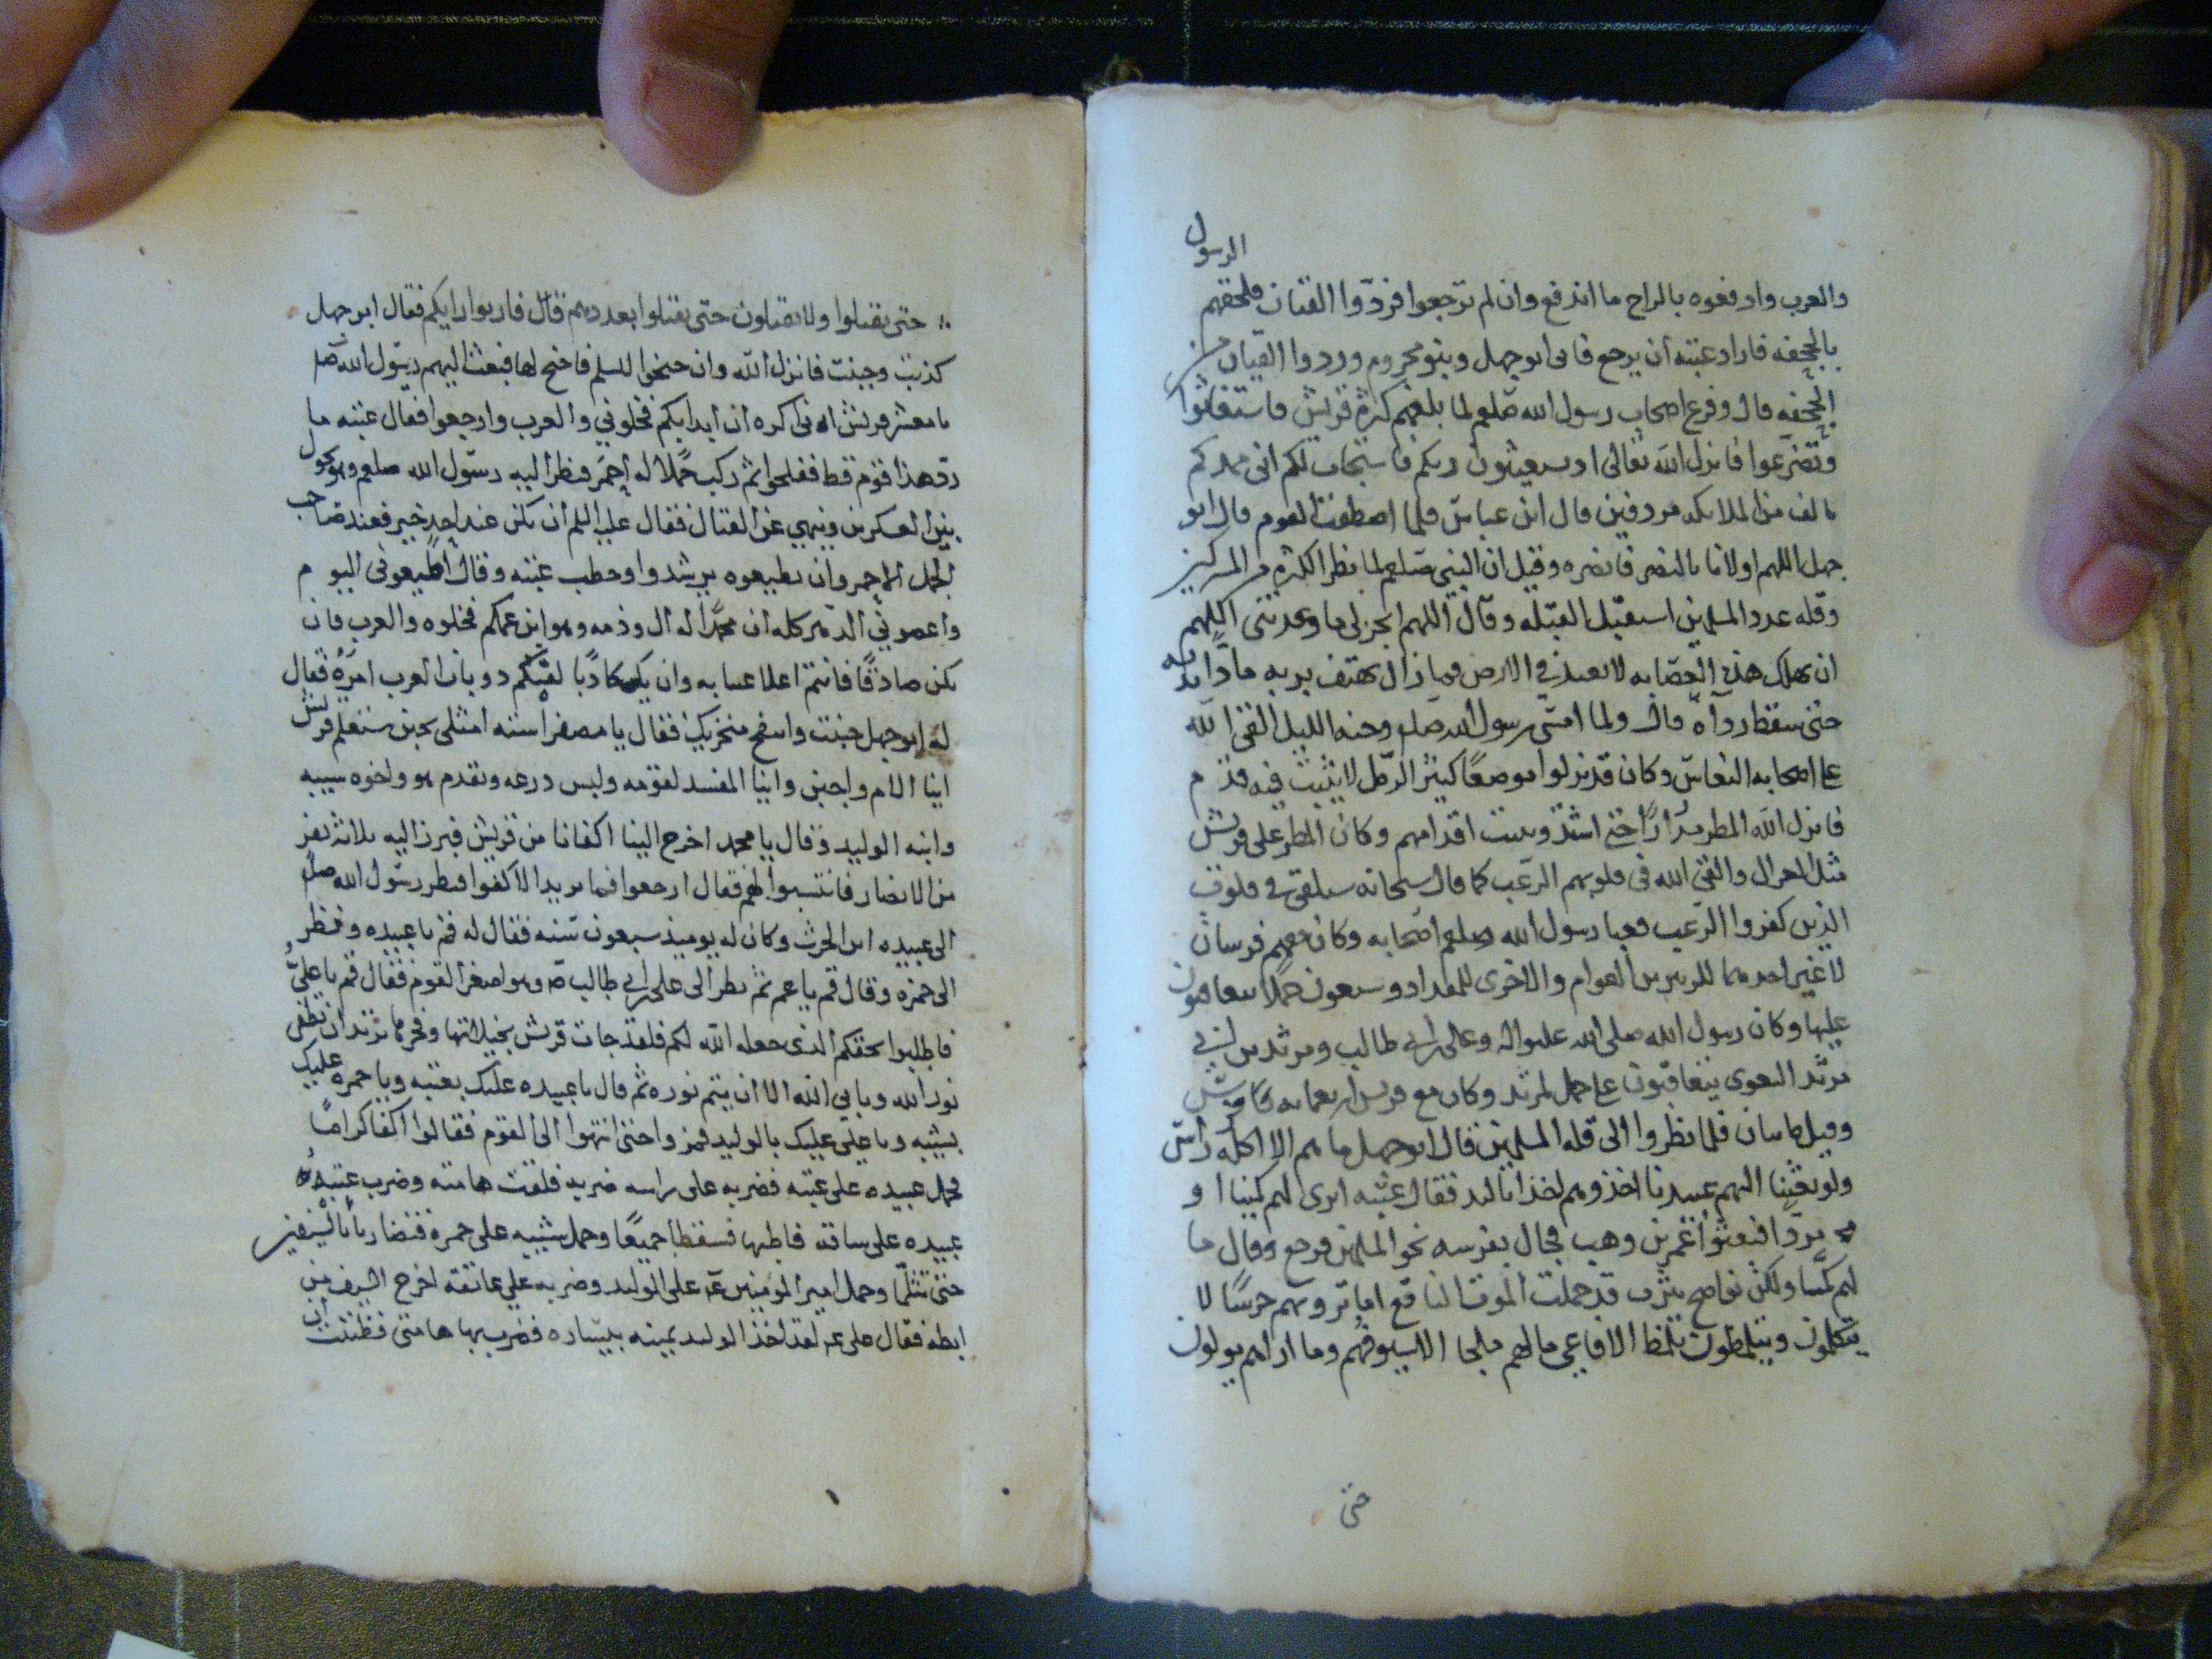 الرسول
والعرب وادفعوه بالراح ما اندفع وان لم ترجعوا فردّوا القيان فلحقهم
بالجحفه فاراد عتبه أن يرجع فابى ابوجهل وبنو مخزوم وردوا القيان من
الجحفه قال وفزع اصحاب رسول الله صلعم لما بلغهم كثرة قريش فاستغاثوا
وتضرّعوا فانزل الله تعالى اذ تستغيثون ربكم فاستجاب لكم انى ممدكم
بالف من الملائكه مردفين قال ابن عباس فلما اصطفت القوم قال ابو
جهل اللهم اولانا بالنصر فانصره وقيل ان النبي صلعم لما نظر الكثره من المشركين
وقله عدد المسلمين استقبل القبله وقال اللهم انجز لى ما وعدتنى اللهم
ان تهلك هذه العصابه لا تعبد في الارض فما زال يهتف بربه مادّا يديه
حتى سقط رداه قال ولما امسى رسول الله صلعم وجنه الليل القى الله
على اصحابه النعاس وكان قد نزلوا موضعًا كثير الرمل لا يثبت فيه قدم
فانزل الله المطر مدرارًا حتى اشتد وثبت اقدامهم وكان المطر على قريش
مثل العزال والقى الله فى قلوبهم الرعب كما قال سبحانه سنلقى في قلوب
الذين كفروا الرعب فعبا رسول الله صلعم اصحابه وكان معهم فرسان
لا غير احدهما للزبير بن العوام والاخرى للمقداد وسبعون جملًا يتعاقبون
عليها وكان رسول الله صلى الله عليه واله وعلى بن ابى طالب ومرثد بن ابى
مرثد الغنوى يتعاقبون على جمل لمرثد وكان مع قريش اربعمايه فرس
وقيل مايتان فلما نظروا الى قله المسلمين قال ابوجهل ما هم الا اكلة رأس
ولو بعثنا اليهم عبيدنا اخذوهم اخذا باليد فقال عتبه اترى لهم كمينا او
مددا فبعثوا عمير بن وهب فجال بفرسه نحو المسلمين فرجع وقال ما
لهم كمينا ولكن نواضح يثرب قد حملت الموت الناقع اما تروهم خرسًا لا
يتكلمون ويتلمظون تلمظ الافاعى ما لهم ملجا الا سيوفهم وما اراهم يولون
حتى
حتى يقتلوا ولا يقتلون حتى يقتلوا بعددهم قال فارتوا رايكم فقال ابوجهل
كذبت وجبنت فانزل الله وان جنحوا للسلم فاجنح لها فبعث اليهم رسول الله صلعم
يا معشر قريش انى اكره أن أبدابكم فخلوني والعرب وارجعوا فقال عتبه ما
ردّ هذا قوم قط ففلحوا ثم ركب جملًا له احمر فنظر اليه رسول الله صلعم وهو يجول
بين العسكرين وينهي عن القتال فقال عليه السلم أن يكن عند احد خير فعند صاحب
الجمل الاحمر وان يطيعوه يرشدوا وخطب عتبه وقال أطيعونى اليوم
وأعصوني الدهر كله أن محمدًا له ال وذمه وهو ابن عمكم فخلوه والعرب فان
يكن صادقًا فانتم اعلا عينا به وان يك كاذبًا لفتكم ذوبان العرب امره فقال
له ابوجهل جبنت وانتفخ منخريك فقال يا مصفر استه امثلى يجبن ستعلم قريش
اينا الام واجبن واينا المفسد لقومه ولبس درعه وتقدم هو واخوه شيبه
وابنه الوليد وقال يا محمد اخرج الينا اكفانا من قريش فبرز اليه ثلاثه نفر
من الانصار فانتسبوا لهم فقال ارجعوا فما نريد الا الاكفوا فنظر رسول الله صلعم
الى عبيده ابن الحرث وكان له يوميذ سبعون سنه فقال له قم يا عبيده ونظر
الى حمزه وقال قم يا عم ثم نظر الى على بن ابى طالب وهو اصغر القوم فقال قم يا على
فاطلبوا بحقكم الذى جعله الله لكم فلقد جات قريش بخيلائها وفخرها تريد أن تطفى
نور الله ويابى الله الا أن يتم نوره ثم قال يا عبيده عليك بعتبه ويا حمزه عليك
بشيبه ويا على عليك بالوليد فمروا حتى انتهوا الى القوم فقالوا اكفا كرامًا
فحمل عبيده على عتبه فضربه على راسه ضربه فلقت هامته وضرب عتبه
عبيده على ساقه فاطنها فسقطا جميعًا وحمل شيبه على حمزه فتضاربا بالسيفين
حتى تثلّما وحمل امير المومنين ع على الوليد وضربه على عاتقه اخرج السيف من
ابطه فقال على لقد اخذ الوليد يمينه بيساره فضرب بها هامتى فظننت أن